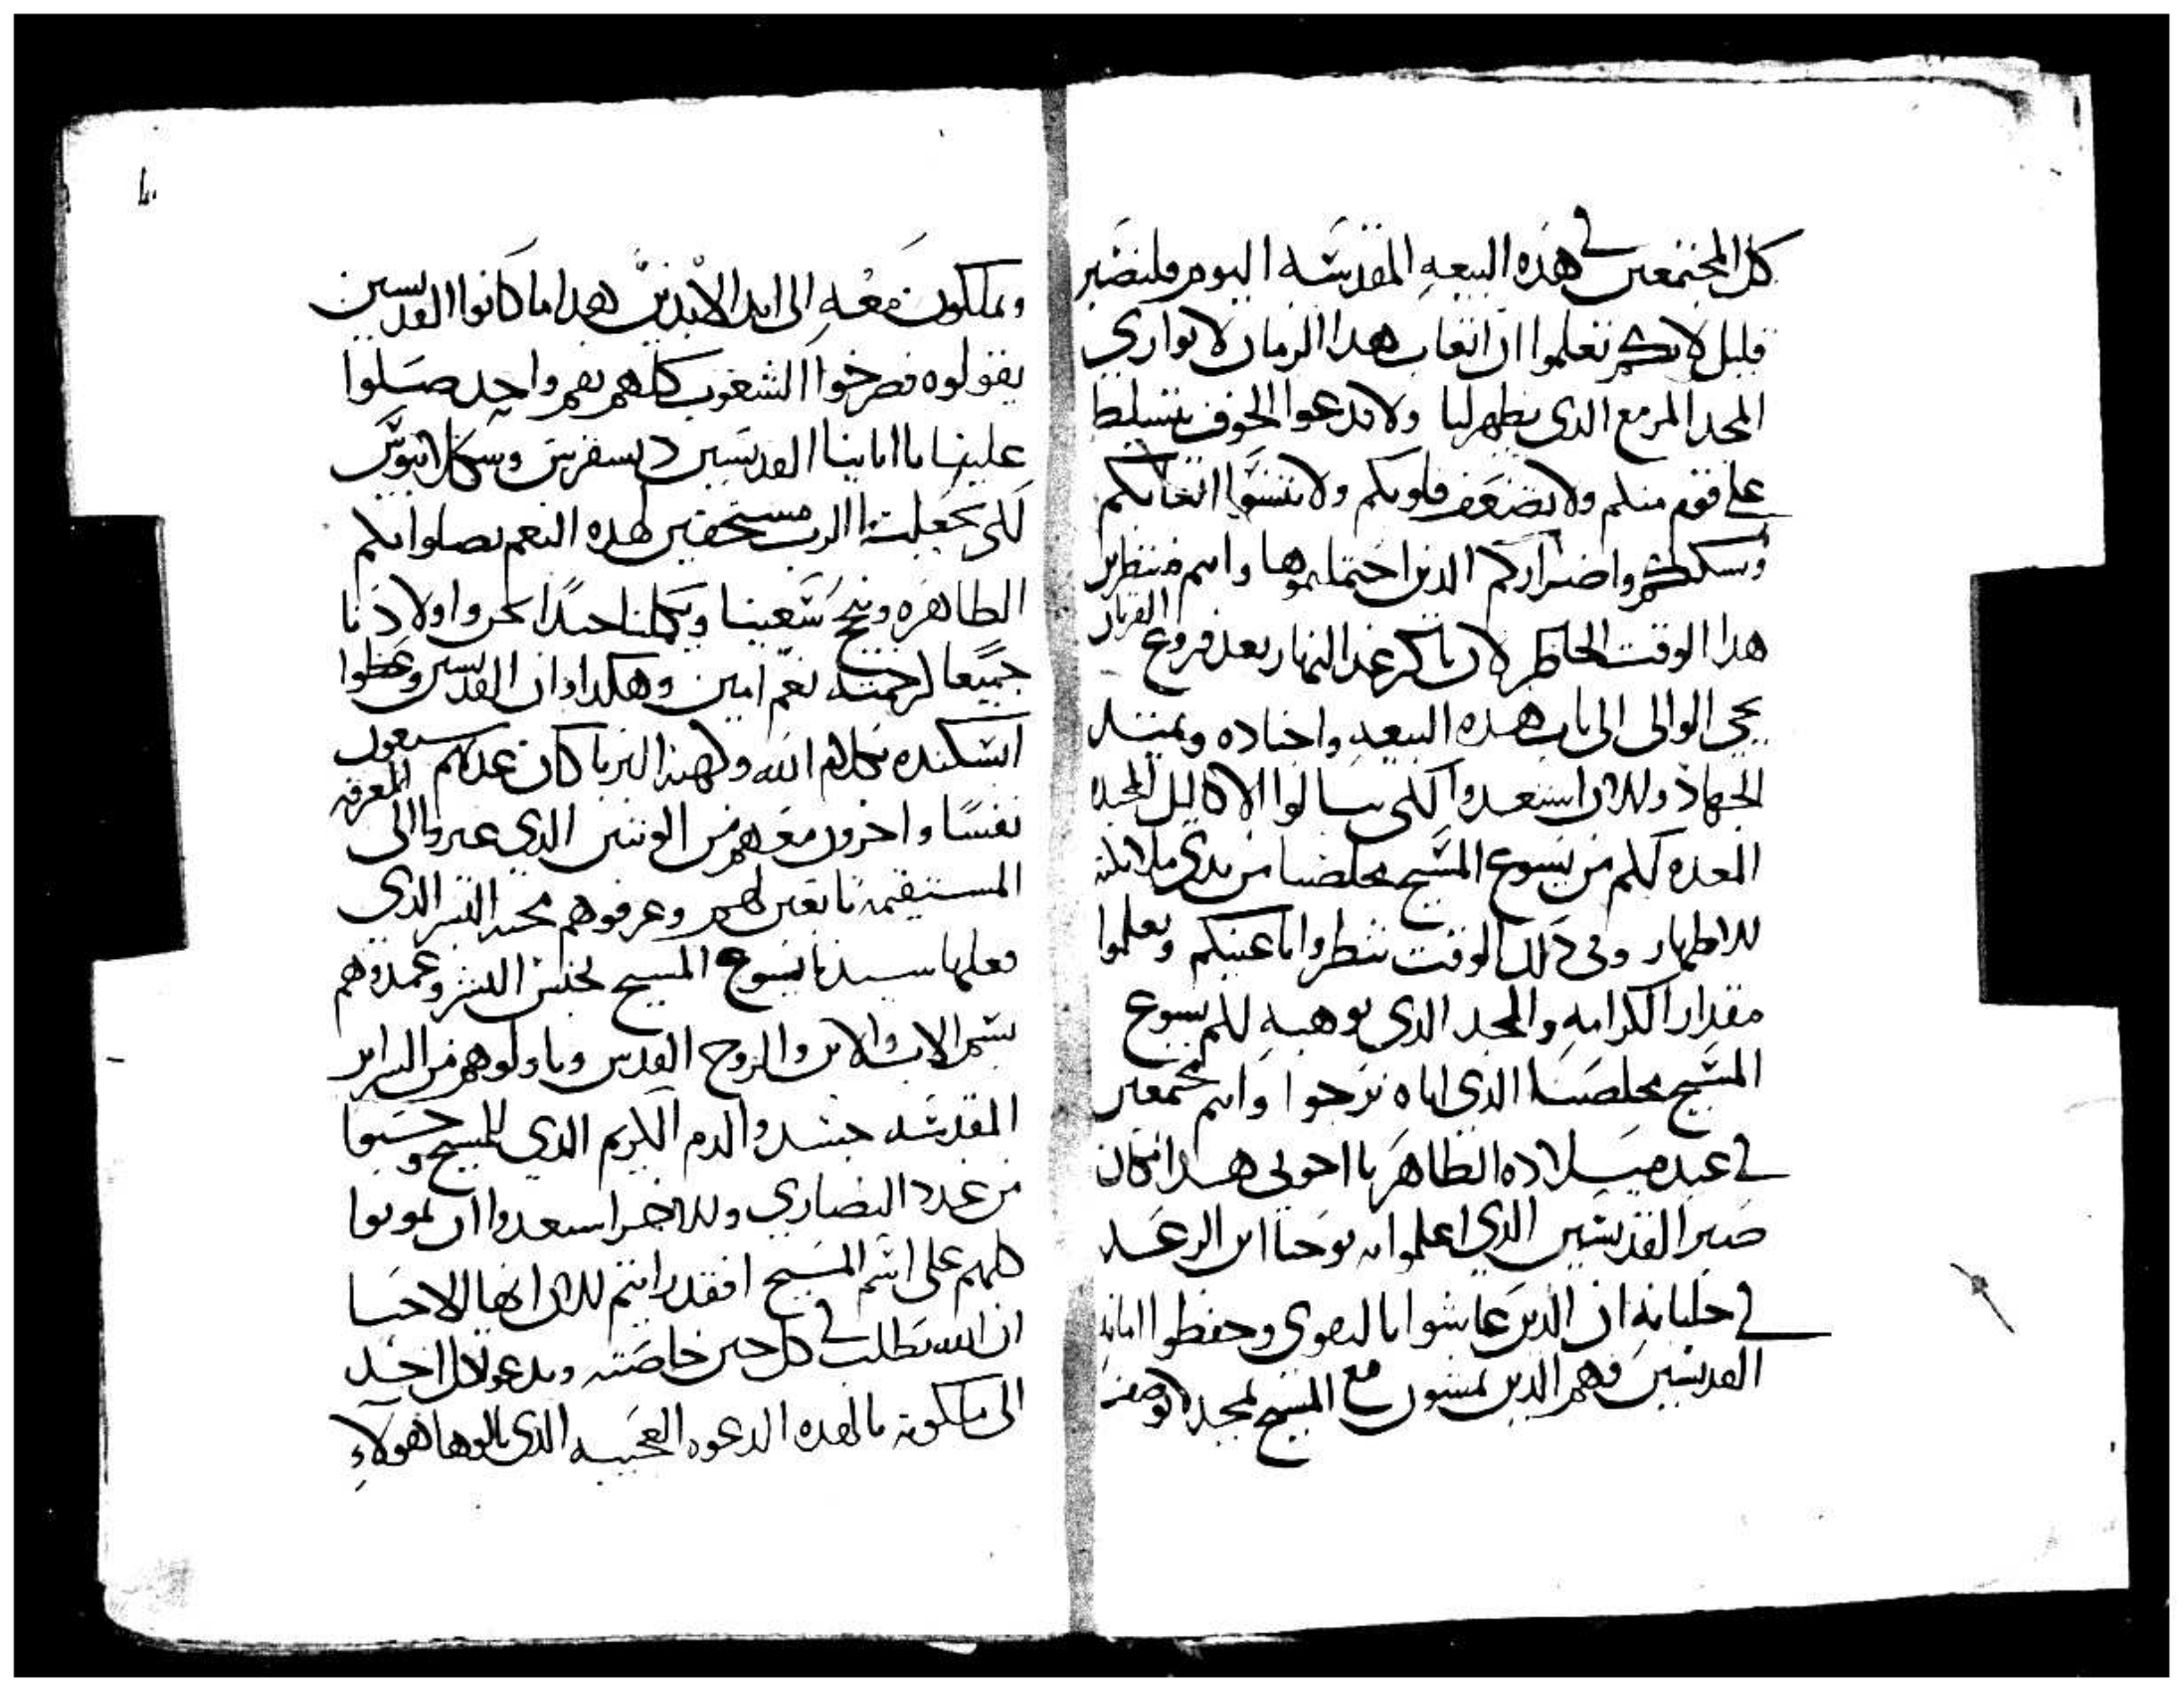 كل المجتمعين في هذه البيعه المقدسه اليوم فلنصبر
قليل لانكم تعلموا ان اتعاب هدا الزمان لا توازي
المجد المزمع الدي يظهر لنا ولا تدعوا الخوف يتسلط
على قوم منكم ولا يضعف قلوبكم ولا تنسوا اتعابكم
وسككم واضراركم الدين احتملتموها وانتم منتظرين
هدا الوقت الحاظر لان باكر غدا النهار بعد فروغ القربان
يجي الوالي الى باب هده البيعه واجناده ويمتد
الجهاد وللان استعدوا لكي تنالوا الاكاليل المجده
المعده لكم من يسوع المسيح مخلصنا من يدي ملايكته
للاطهار وفي ذلك الوقت تنظروا باعينكم وتعلموا
مقدار الكرامه والمجد الدي يوهبه لكم يسوع
المسيح مخلصنا الدي اياه ترجوا وانتم مجتمعين
في عيد ميلاده الطاهر يا اخوتي هدا مكان
صبر القديسين الدي اعلموا به يوحنا ابن الرعد
في جليانه ان الدين عاشوا بالتقوى وحفظوا امانة
القديسين فهم الدين يمشون مع المسيح لمجد لا يوصف
ويملكون معه الى ابد الابدين هدا ما كانوا القديسين
يقولوه فصرخوا الشعوب كلهم بفم واحد صلوا
علينا يا اباينا القديسين ديسقرس وسكلابيوس
لكي يجعلنا الرب مستحقين لهده النعم بصلواتكم
الطاهره وينيح شعبنا ويكملنا جيدا نحن واولادنا
جميعا لرحمته نعم امين وهكدا دان القديسين وعظوا
السكنده بكلام الله وكهنة البربا كان عدتهم سبعون
نفسا واخرون معهم من الوتنين الدي عبروا الى المعرفه
المستقيمه تابعين لهم وعرفوهم محبة البشر الدي
فعلها سيدنا يسوع المسيح لجنس البشر وعمدوهم
بسم الاب والابن والروح القدس وناولوهم من السراير
المقدسه جسد والدم الكريم الدي للمسيح وحسبوا
من عدد النصارى وللاخر استعدوا ان يموتوا
كلهم على اسم المسيح افقد رايتم للان ايها الاحبا
ان الله يطلب في كل حين خاصته ويدعو لكل احد
الى ملكوته يا لهده الدعوه العجيبه الدي نالوها هولاء